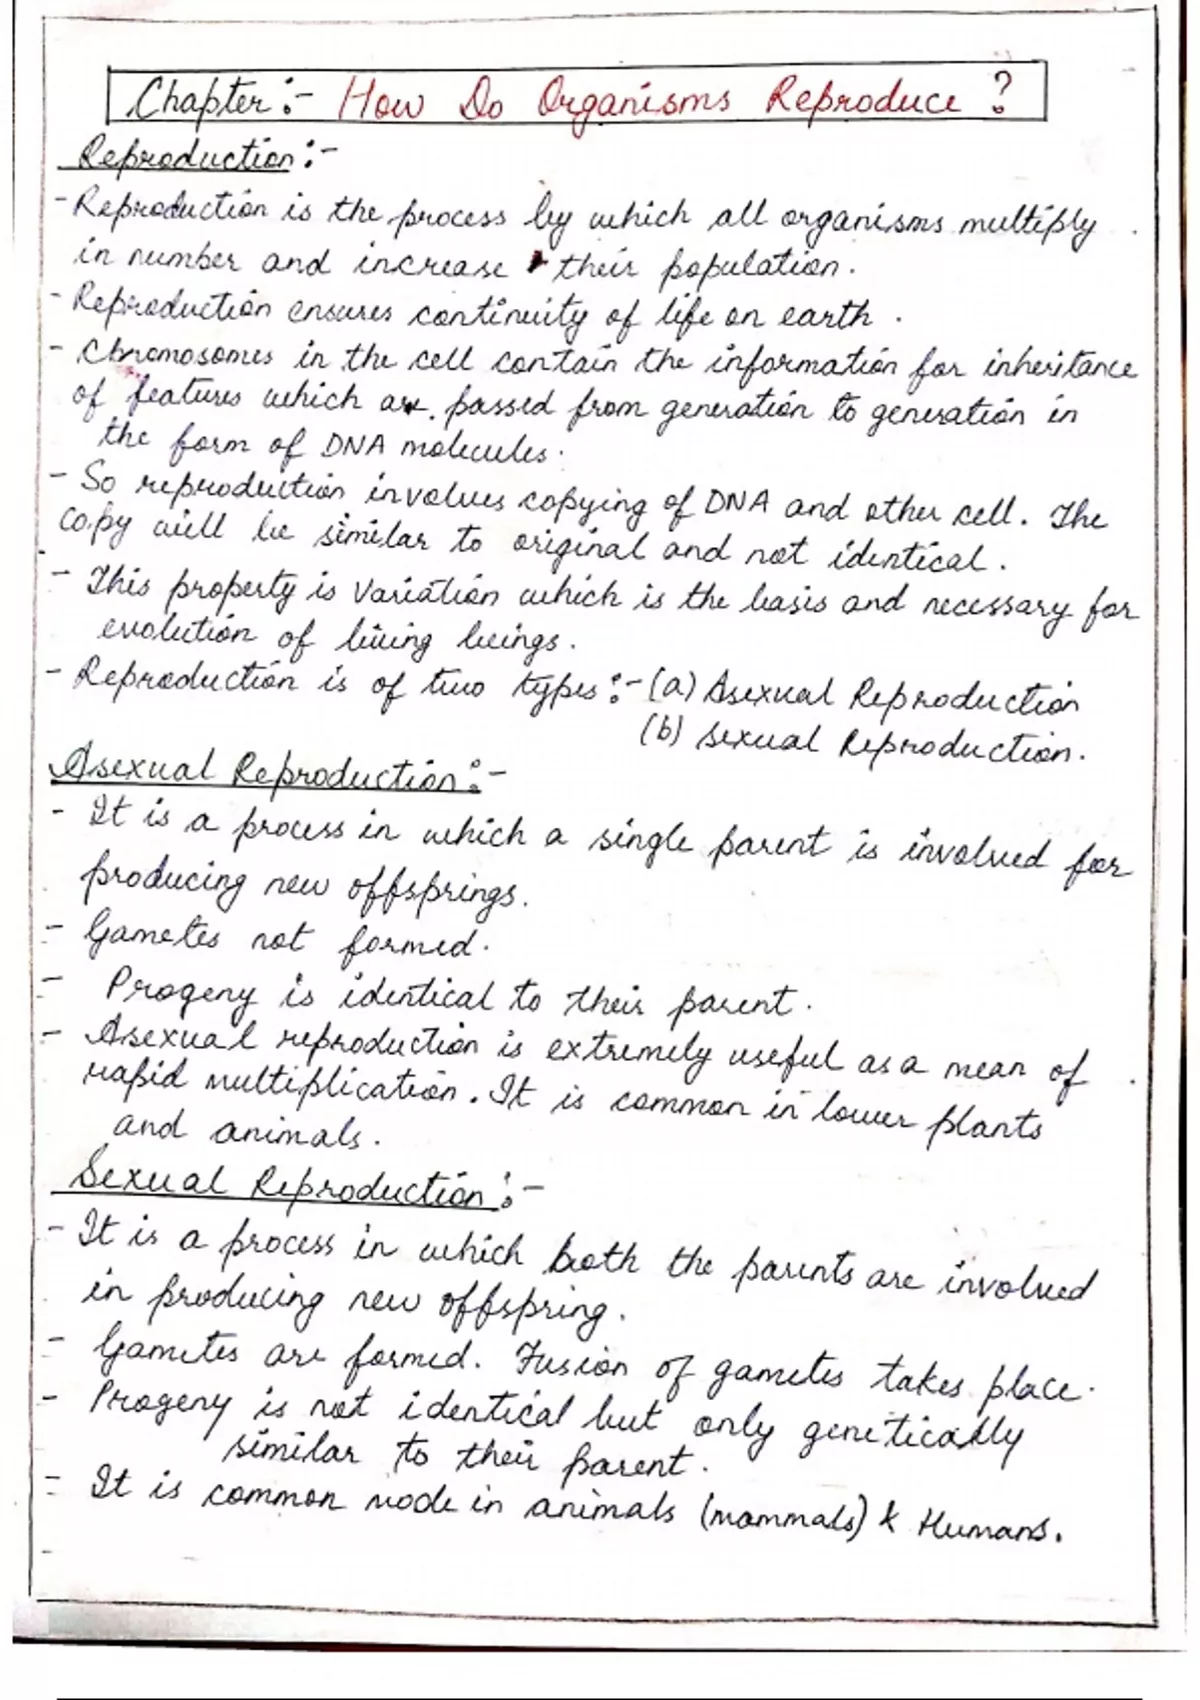 Chapter:- How Do Organisms Reproduce ?
Reproduction:-
- Reproduction is the process by which all organisms multiply
in number and increase their population.
- Reproduction ensures continuity of life on earth .
- Chromosomes in the cell contain the information for inheritance
of features which are passed from generation to generation in
the form of DNA molecules.
- So reproduction involves copying of DNA and other cell. The
copy will be similar to original and not identical.
- This property is variation which is the basis and necessary for
evolution of living beings.
- Reproduction is of two types:- (a) Asexual Reproduction
(b) sexual Reproduction.
Asexual Reproduction:-
- It is a process in which a single parent is involved for
producing new offsprings.
- Gametes not formed.
- Progeny is identical to their parent.
- Asexual reproduction is extremely useful as a mean of
rapid multiplication. It is common in lower plants
and animals.
Sexual Reproduction:-
- It is a process in which both the parents are involved
in producing new offspring.
- Gametes are formed. Fusion of gametes takes place.
- Progeny is not identical but only genetically
similar to their parent.
- It is common mode in animals (mammals) & Humans.